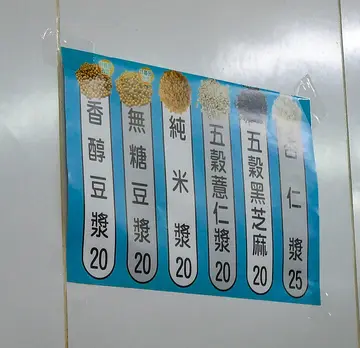 香醇豆漿 20
無糖豆漿 20
純米漿 20
五穀薏仁漿 20
五穀黑芝麻 20
杏仁漿 25